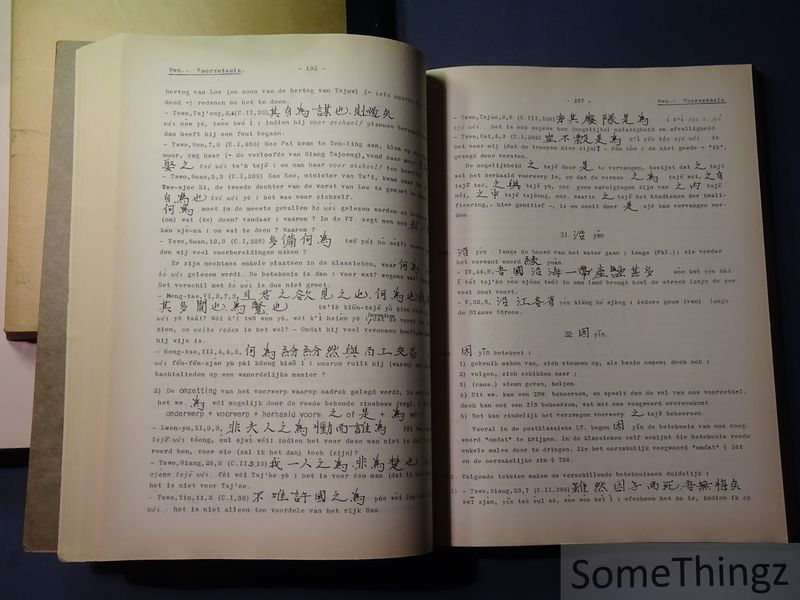 Hwn.- Voorzetsels. - 186 -
hertog van Loe (en zoon van de hertog van Tsjow) (- iets waarom
deed -) redenen om het te doen.
- Tswo, Tsj'eng, 2,4 (C.II,25) 其自為謀也 則過矣
: indien hij voor zichzelf plannen beraamt
dan heeft hij een fout begaan.
- Tswo, Wen, 7,9 (C.I,485) Hoe Pai kwam te Yen-ling aan, klom op de
muur, zag haar (- de verloofde van Siang Tsjoeng), vond haar mooi
娶之 tsé wéi ts'u tsjë : en nam haar voor zichzelf ten
- Tswo, Suan, 3,3 (C.I,589) Kao Koe, minister van Ts'i, kwam naar
Tse-sjoe Ki, de tweede dochter van de vorst van Loe te
自為也 tsé wéi yè : het was voor zichzelf.
何為 moet in de meeste gevallen ho wéi gelezen worden en betekent
(om) wat (te doen? vandaar : waarom ? In de VT. zegt men ook
kan sjë-ma : om wat te doen ? Waarom ?
- Tswo, Suan, 12,3 (C.I,626) 多備何為 two péi ho wéi? waarom
den wij veel voorbereidingen maken ?
Er zijn nochtans enkele plaatsen in de klassieken, waar 何為
ho wéi gelezen wordt. De betekenis is dan : voor wat? wegens wat?
Het verschil met ho wéi is dus niet groot.
- Meng-tse, VI,B,7,3 且君之欲見之也 何為也哉
其多聞也 為賢也
zien, om welke reden is het wel? - Omdat hij veel vernomen heeft,
hij wijs is.
- Meng-tse, III,A,4,5 何為紛紛然與百工交易
wéi fën-fën-zjan yù pai köeng kiaō í : waarom ruilt hij (waren)
bachtslieden op een wanordelijke manier ?
2) De omzetting van het voorwerp waarop nadruk gelegd wordt, is
het ww. 為 wéi mogelijk door de reeds bekende zinsbouw (vrgl.
onderwerp + voorwerp + herhaald voorw. 之 of 是 + 為
- Lwen-yu, XI,9,3 非夫人之為慟而誰為
tsjë wéi tóeng, eul sjwi wéi: indien het voor deze man niet is dat
roerd ben, voor wie (zal ik het dan) toch (zijn)?
- Tswo, Siang, 28,9 (C.II,519) 我一人之為 非為楚也
zjenn tsjë wéi, fëi wéi Tsj'òe yè : het is voor één man (dat ik
het is niet voor Tsj'oe.
- Tswo, Yin, 11,3 (C.I,58) 不唯許國之為
wéi : het is niet alleen ten voordele van het rijk Hsu.
- 187 - Hwn.- Voorzetsels
- Tswo, Tsjao, 9,3 (C.III,166) 是為
: het is ook wegens hun (mogelijke) nalatigheid en afvalligheid
- Tswo, Hsi, 4,3 (C.I,242) 豈不穀是為
het voor mij (dat de troepen hier zijn)? - Póe kòe : de niet goede - "ik",
gezegd door vorsten.
De mogelijkheid 之 tsjë door 是 te vervangen, bewijst dat 之 tsjë
wel het herhaald voorwerp is, en dat de vormen 之為 tsjë wéi, 之自
tsjë tsé, 之與 tsjë yù, enz. geen navolgingen zijn van 之內 tsjë
néi, 之中 tsjë tsjöeng, enz. waarin 之 tsjë het bindteken der kwali-
ficering,- hier genitief -, is en nooit door 是 sjé kan vervangen wor-
den.
31. 沿 yên
沿 yên : langs de boord van het water gaan ; langs (Pkl.); zie verder
het verwant woord 緣 yuan
- IV,44,3, 吾國沿海一帶產鹽甚多 woe kwo yên hài
í tái tsj'àn yên sjénn two: in ons land brengt heel de streek langs de zee
veel zout voort.
- V,32,5, 沿江各省 yên kiäng kò sjèng : iedere gouw (van) langs
de Blauwe Stroom.
32 因 yïn.
因 yïn betekent :
1) gebruik maken van, zich steunen op, als basis nemen; doch ook :
2) volgen, zich schikken naar ;
3) (caus.) steun geven, helpen.
4) Dit ww. kan een ZNW. beheersen, en speelt dan de rol van ons voorzetsel,
doch kan ook een Zin beheersen, wat met ons voegwoord overeenkomt.
5) Het kan eindelijk het verzwegen voorwerp 之 tsjë beheersen.
Vooral in postklassieke LT. begon 因 yïn de betekenis van ons voeg-
woord "omdat" te krijgen. In de klassieken zelf schijnt die betekenis reeds
enkele malen door te dringen. Zie het oorzakelijk voegwoord "omdat" § 541
en de oorzakelijke zin § 734.
Volgende teksten maken de verschillende betekenissen duidelijk :
- Tswo, Siang, 23,7 (C.II,388) 雖然因子而死 吾無悔矣
swï zjan, yïn tsè eul sè, woe woe hwéi ì : ofschoon het zo is, indien ik op
SomeThingz